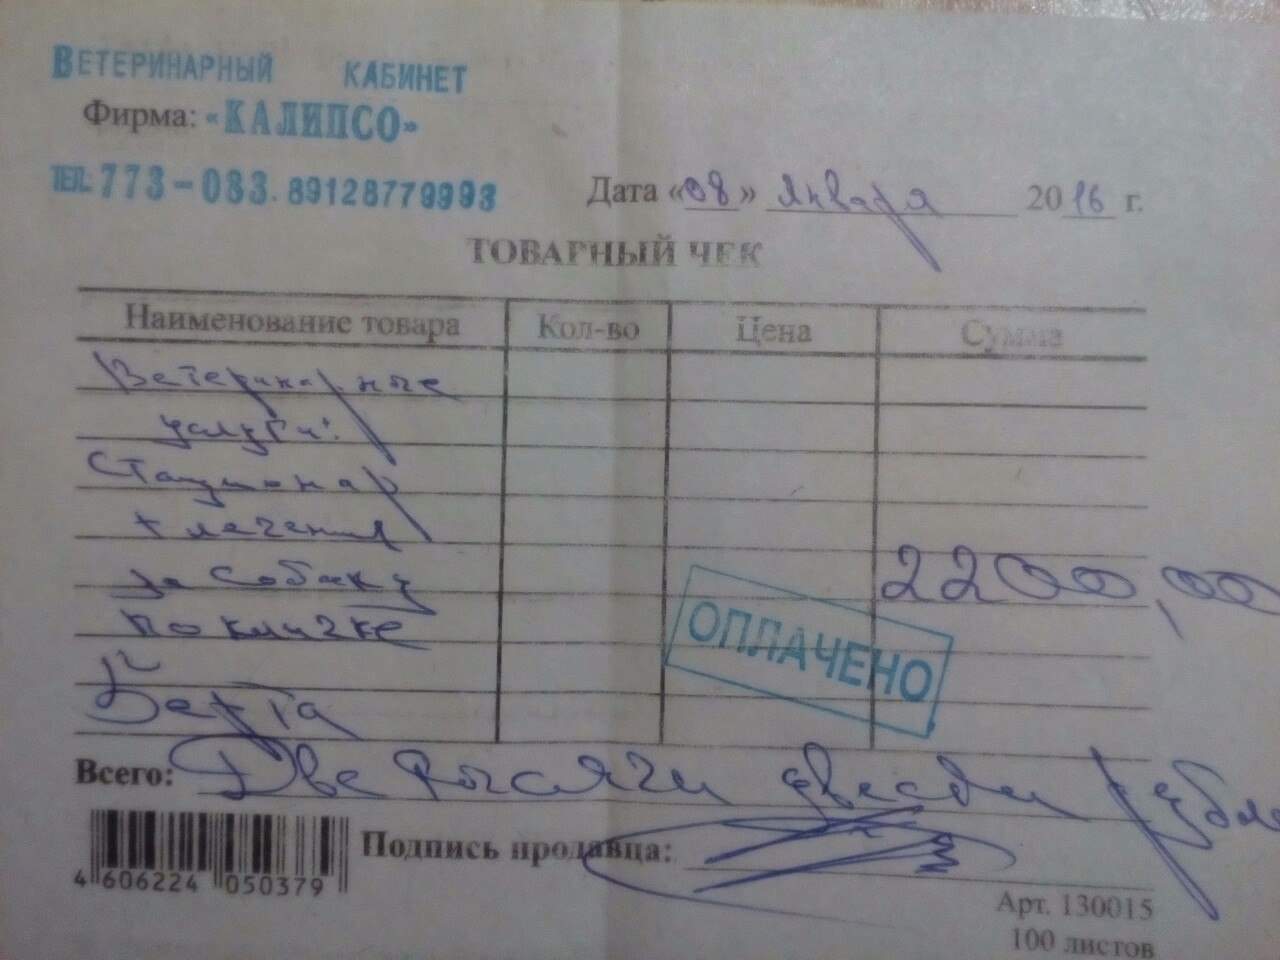 ВЕТЕРИНАРНЫЙ КАБИНЕТ
Фирма: «КАЛИПСО»
ТЕЛ. 773-083. 89128779993
Дата «08» января 2016 г.
ТОВАРНЫЙ ЧЕК
Наименование товара Кол-во Цена Сумма
Ветеринарные
услуги:
Стационар
+ лечения
за собаку 2200,00
по кличке
Берта
ОПЛАЧЕНО
Всего: Две тысячи двести рубле
Подпись продавца:
4 606224 050379
Арт. 130015
100 листов